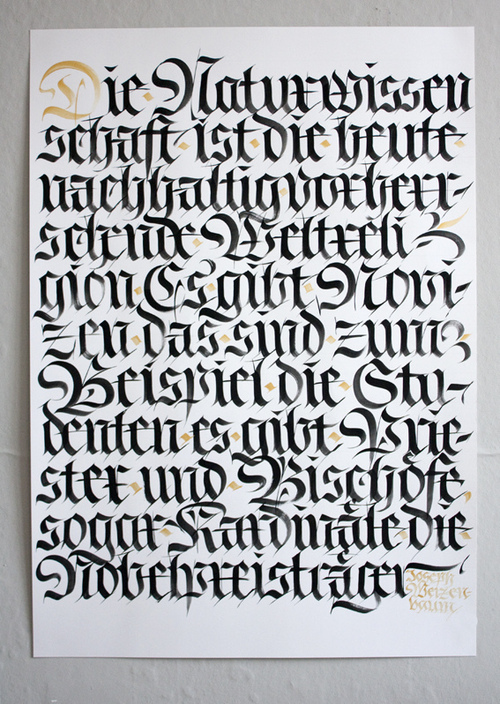 Die Naturwissen
schaft ist die heute
nachhaltig vorherr-
schende Weltreli-
gion Es gibt Novi-
zen das sind zum
Beispiel die Stu-
denten es gibt Prie-
ster und Bischöfe,
sogar Kardinäle die
Nobelpreisträger
Joseph
Weizen-
baum